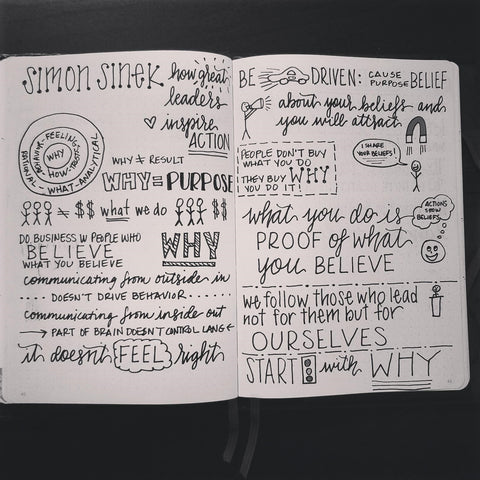 SIMON SINEK how great
leaders
inspire
ACTION
WHY
HOW
WHAT - ANALYTICAL
RATIONAL
BEHAVIOR - FEELING
WHY ≠ RESULT
WHY = PURPOSE
≠ $$ what we do $$
DO BUSINESS W PEOPLE WHO
BELIEVE
WHAT YOU BELIEVE
WHY
communicating from outside in
DOESN'T DRIVE BEHAVIOR
communicating from inside out
PART OF BRAIN DOESN'T CONTROL LANG
it doesn't FEEL right
BE DRIVEN: CAUSE
PURPOSE BELIEF
about your beliefs and
you will attract
PEOPLE DON'T BUY
WHAT YOU DO
THEY BUY WHY
YOU DO IT!
I SHARE
YOUR BELIEFS!
what you do is
PROOF of what
you BELIEVE
ACTIONS
SHOW
BELIEFS
we follow those who lead
not for them but for
OURSELVES
START with WHY